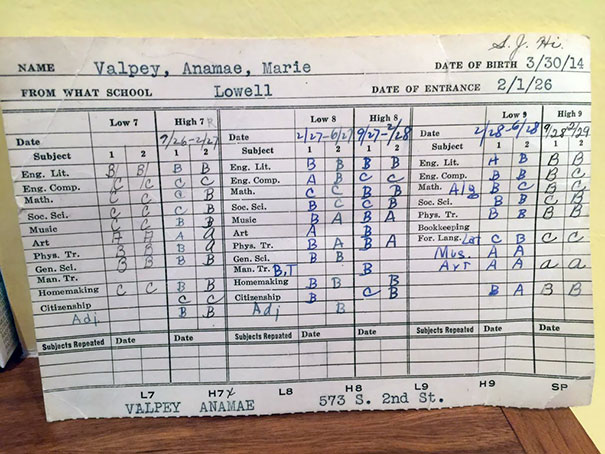 S. J. Hi.
NAME Valpey, Anamae, Marie DATE OF BIRTH 3/30/14
FROM WHAT SCHOOL Lowell DATE OF ENTRANCE 2/1/26
Low 7 High 7 Low 8 High 8 Low 9 High 9
Date 9/26-2/27 Date 2/27-6/27 9/27-2/28 Date 2/28-6/28
Subject 1 2 1 2 Subject 1 2 1 2 Subject 1 2 1 2
Eng. Lit. B B B B Eng. Lit. B B B B Eng. Lit. A B B B
Eng. Comp. C C C C Eng. Comp. A B C C Eng. Comp. B B B C
Math. C C C B Math. C C B B Math. Alg B C B C
Soc. Sci. C C C B Soc. Sci. B C C B Soc. Sci. B B C B
Music C C B B Music B A B A Phys. Tr. B B B B
Art A A A Art A B Bookkeeping
Phys. Tr. B B B Phys. Tr. B A B A For. Lang. Lat C B C C
Gen. Sci. B B B B Gen. Sci. B B Mus. A A
Man. Tr. Man. Tr. B,T B Art A A a a
Homemaking C C B B Homemaking B B B B A B B
Citizenship C C Citizenship B C B
Adj B B Adj B
Subjects Repeated Date Date Subjects Repeated Date Date Subjects Repeated Date Date
L7 H7 L8 H8 L9 H9 SP
VALPEY ANAMAE 573 S. 2nd St.